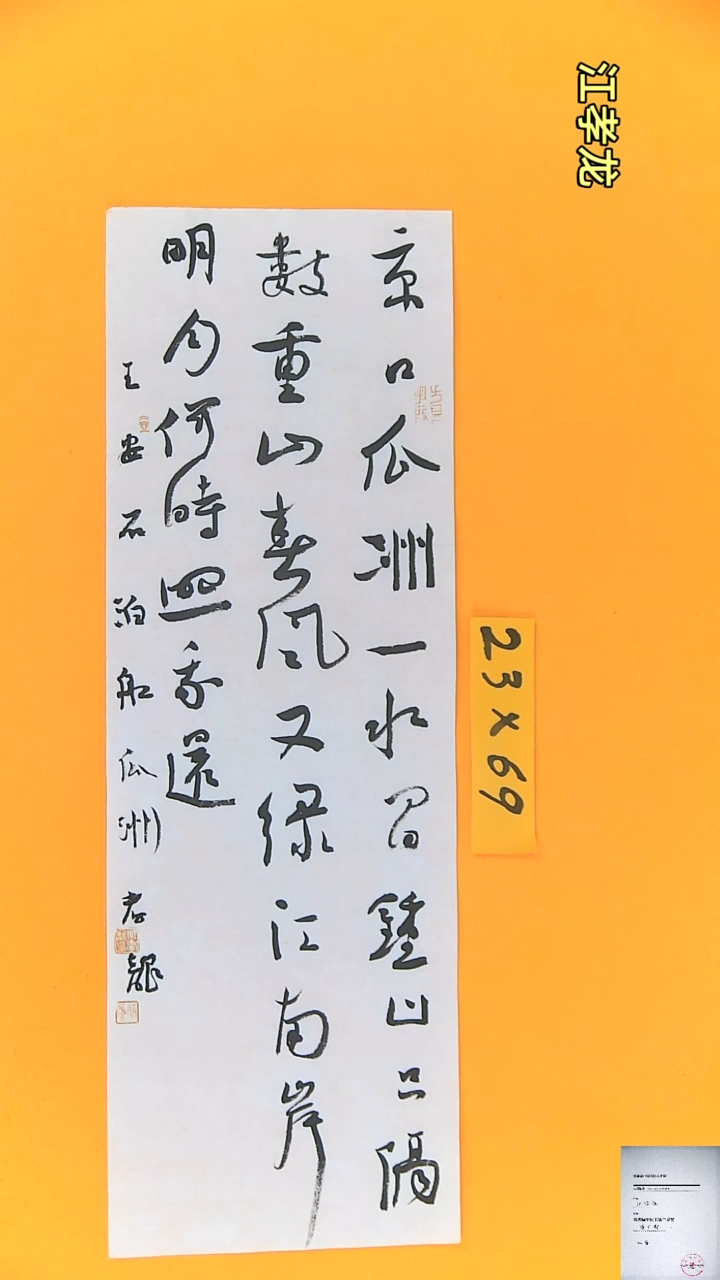 江孝龙
京口瓜洲一水间鍾山只隔
數重山春风又绿江南岸
明月何時照我還
王安石泊船瓜洲 孝龍
23×69